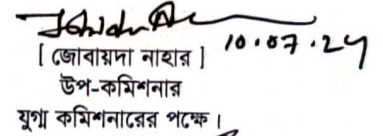 10.07.24
[ জোবায়দা নাহার ]
উপ-কমিশনার
যুগ্ম কমিশনারের পক্ষে।